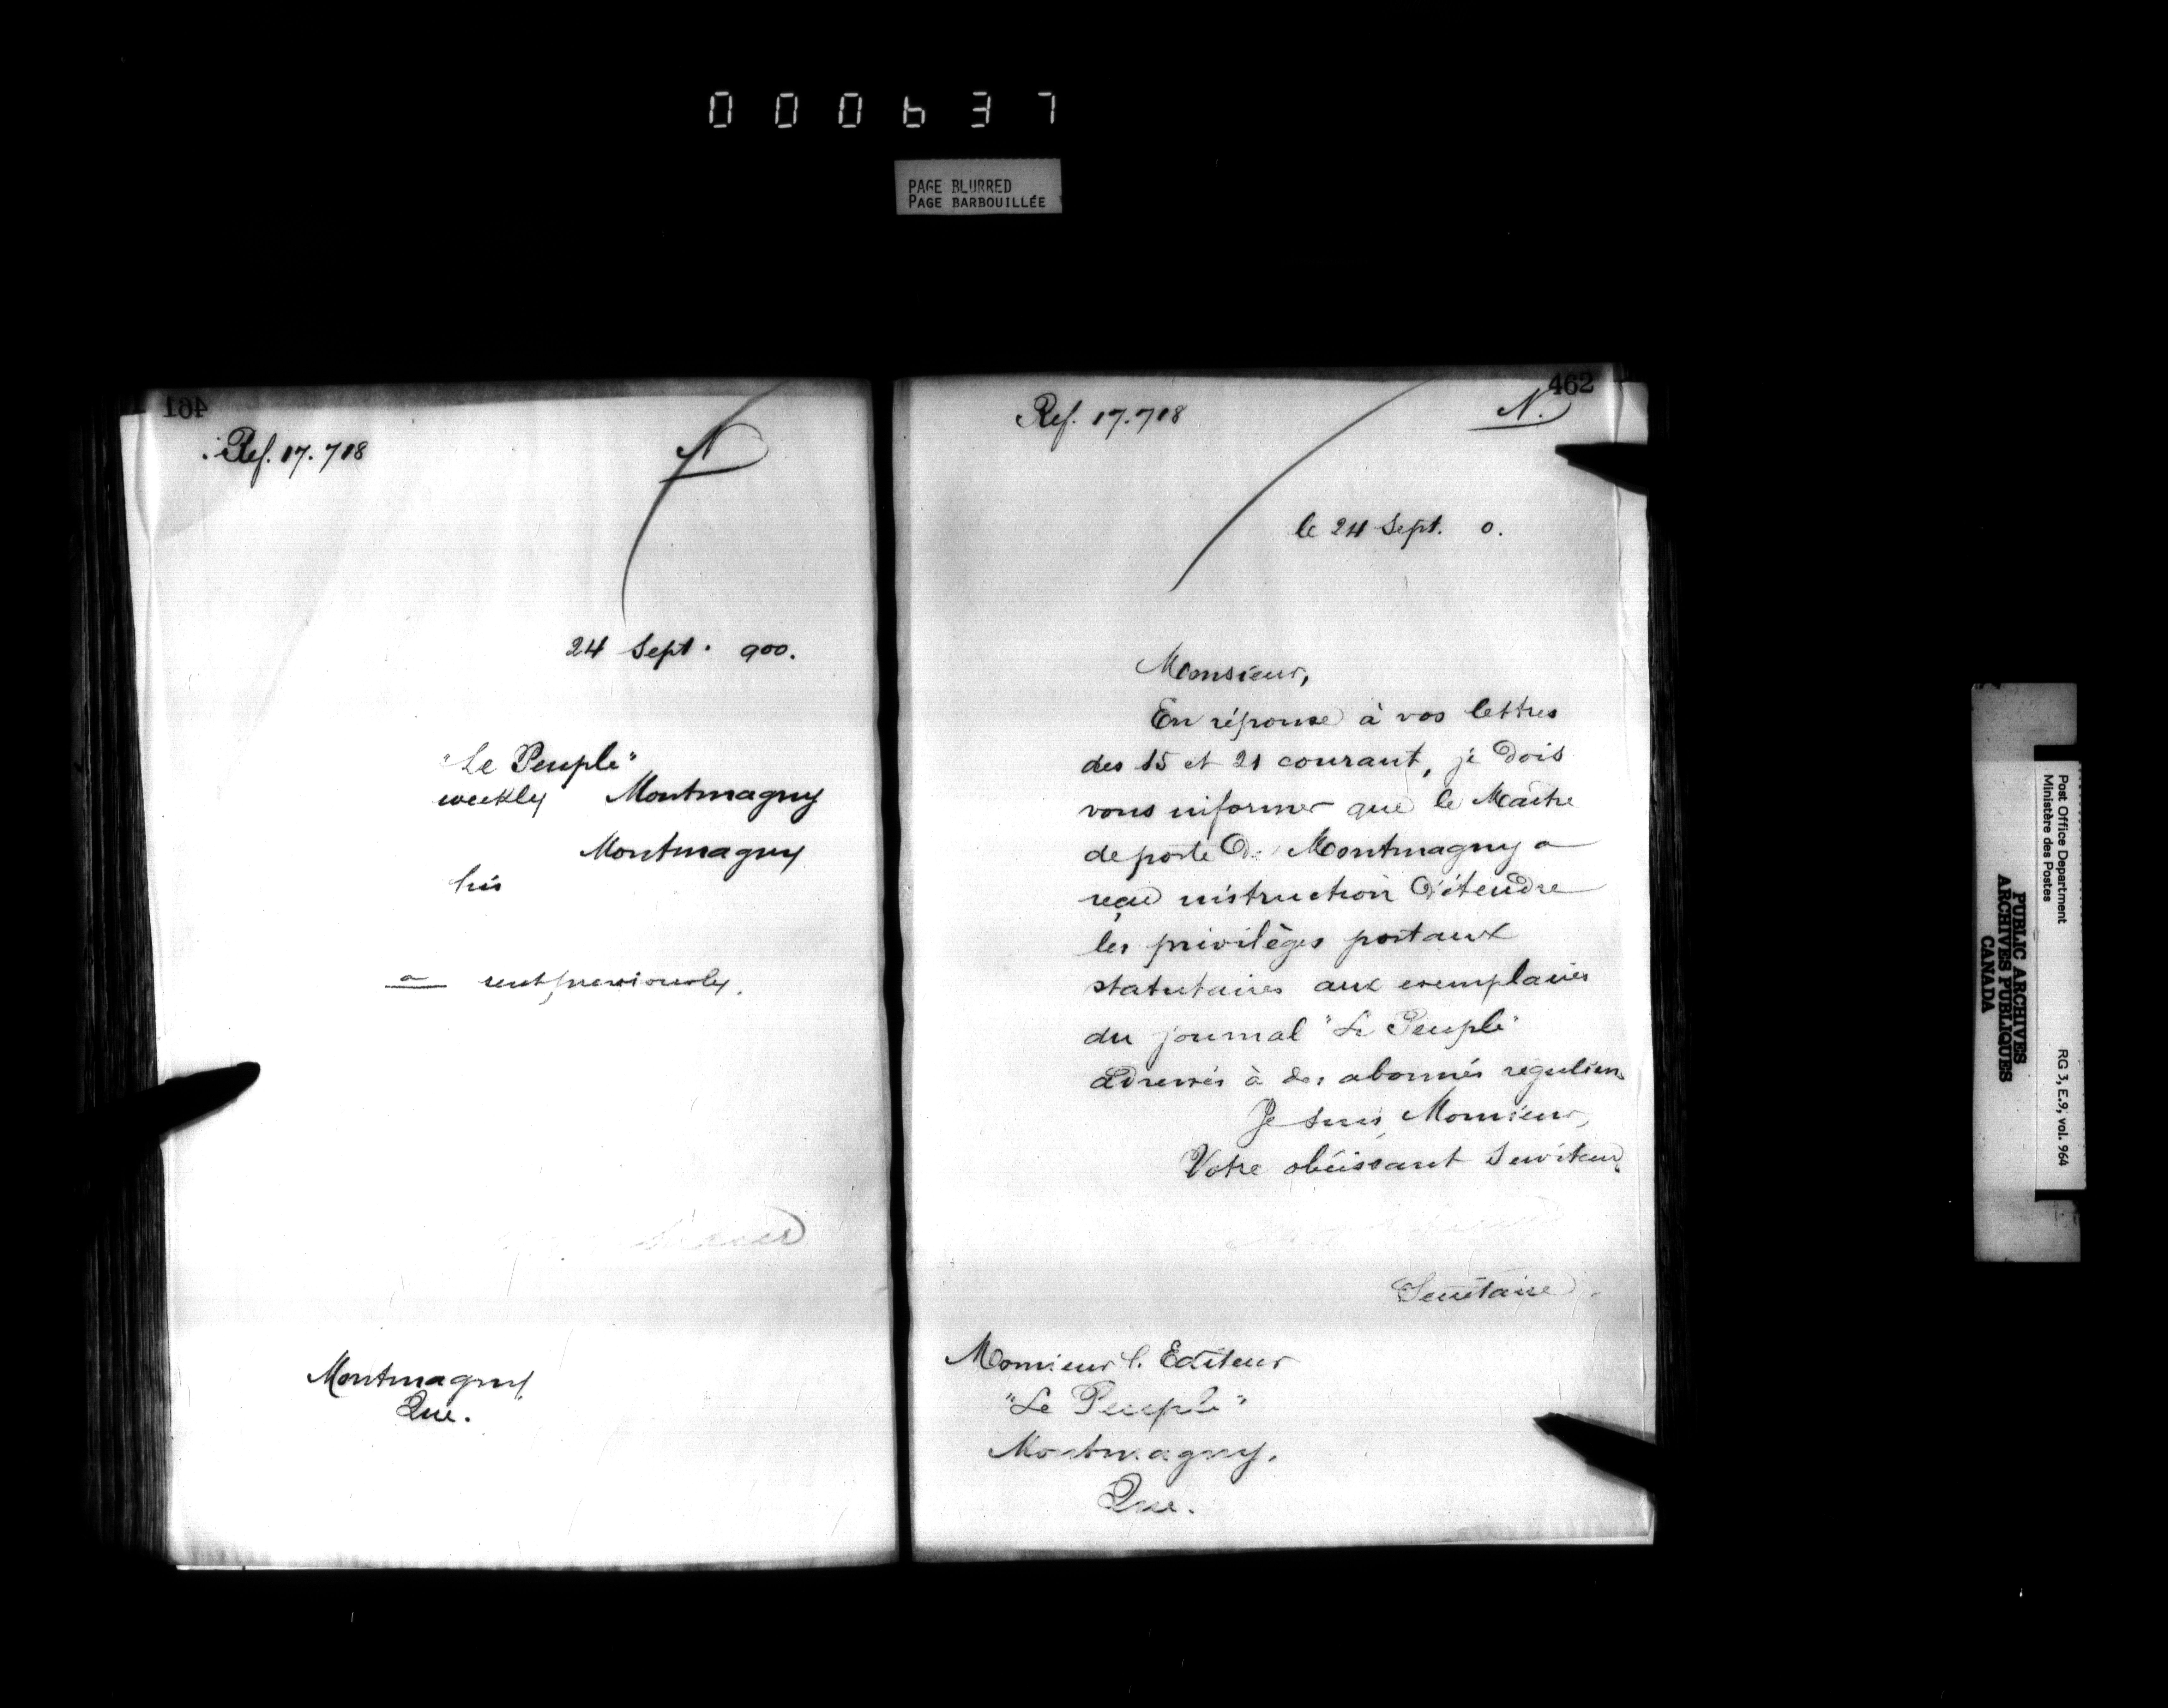 000637
PAGE BLURRED
PAGE BARBOUILLÉE
461
Ref. 17.718
N
24 Sept. 900.
"Le Peuple"
weekly Montmagny
Montmagny
his
a sent previously.
Montmagny
Que.
462
Ref. 17.718
N.
le 24 Sept. 0.
Monsieur,
En réponse à vos lettres
des 15 et 21 courant, je dois
vous informer que le Maître
de poste de Montmagny a
reçu instruction d'étendre
les privilèges postaux
statutaires aux exemplaires
du journal "Le Peuple"
adressés à des abonnés réguliers
Je suis, Monsieur,
Votre obéissant Serviteur,
Secrétaire.
Monsieur l'Editeur
"Le Peuple"
Montmagny.
Que.
Post Office Department
Ministère des Postes
RG 3, E.9, vol. 964
PUBLIC ARCHIVES
ARCHIVES PUBLIQUES
CANADA